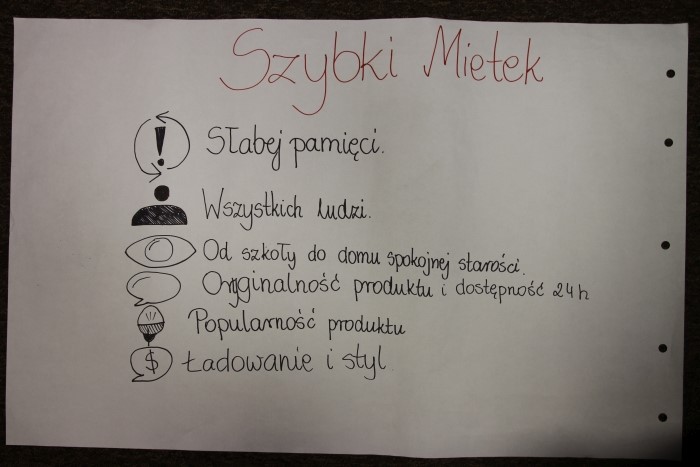 Szybki Mietek
! Słabej pamięci.
Wszystkich ludzi.
Od szkoły do domu spokojnej starości.
Oryginalność produktu i dostępność 24h
Popularność produktu
$ Ładowanie i styl